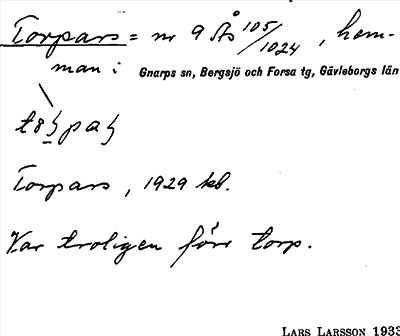 Torpars = nr 9 Ås 105/1024, hem-
man i Gnarps sn, Bergsjö och Forsa tg, Gävleborgs län
Torpars, 1929 kb.
Var troligen förr torp.
LARS LARSSON 1933